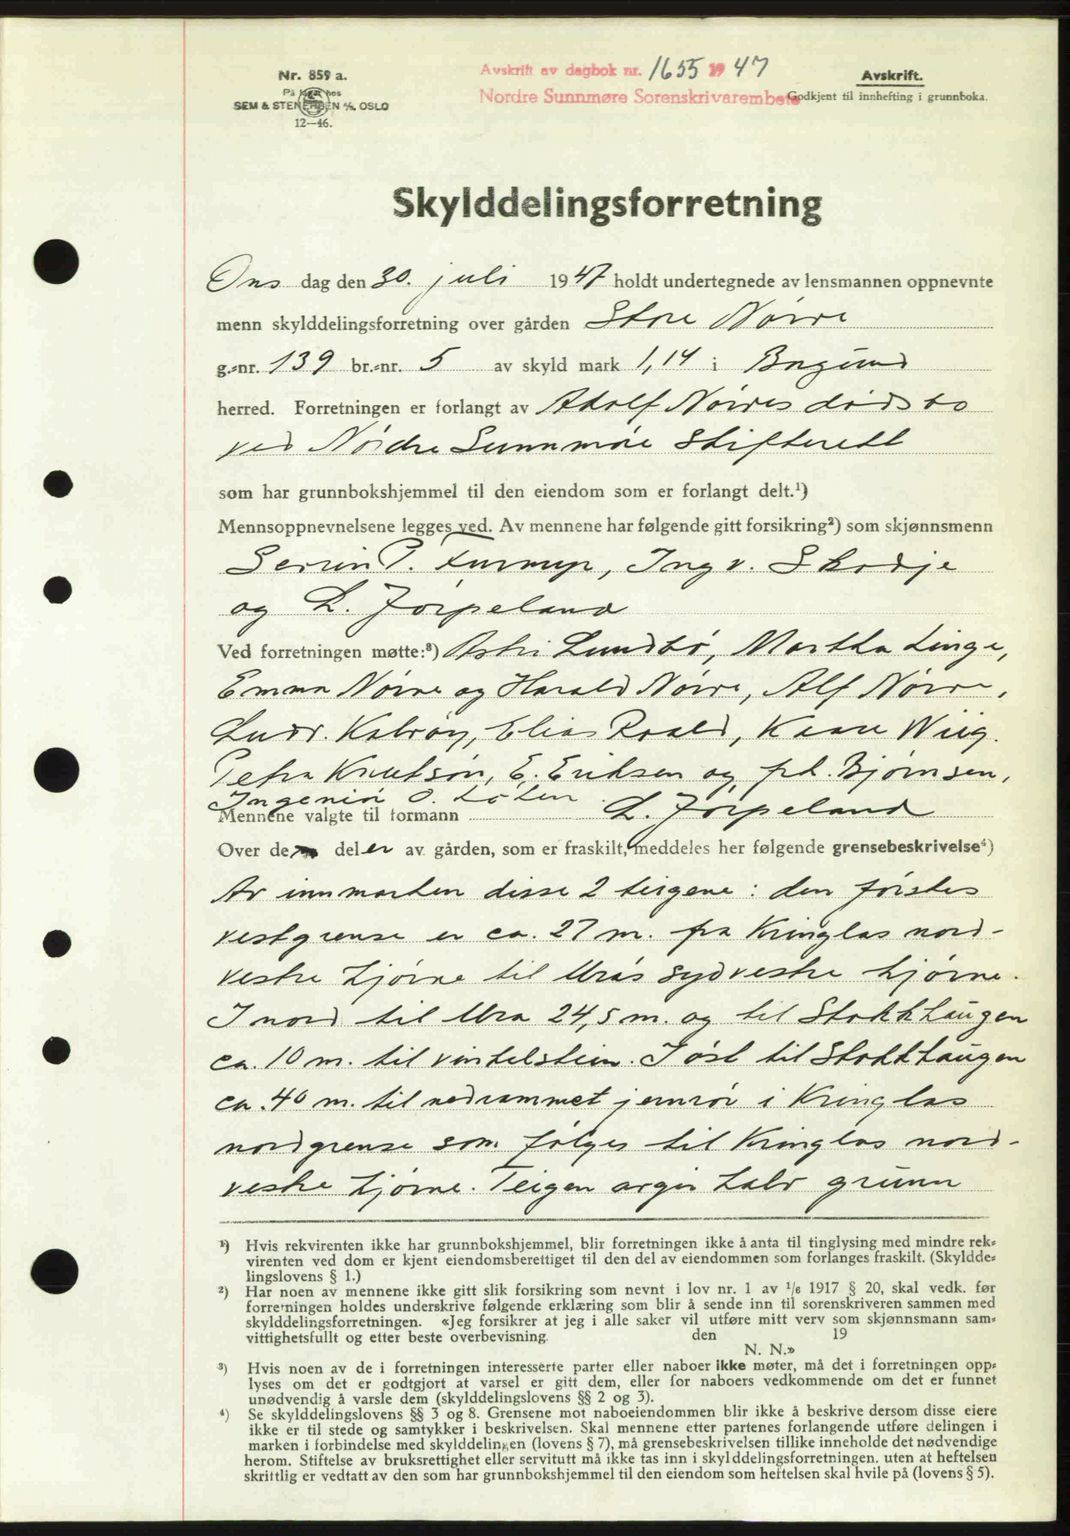 Nr. 859 a.
På lager hos
SEM & STENERSEN A/S. OSLO
12—46.
Avskrift av dagbok nr. 1655 1947
Nordre Sunnmøre Sorenskriverembete
Avskrift.
Godkjent til innhefting i grunnboka.
Skylddelingsforretning
Ons dag den 30. juli 1947 holdt undertegnede av lensmannen oppnevnte
menn skylddelingsforretning over gården Store Nørve
g.-nr. 139 br.-nr. 5 av skyld mark 1,14 i Borgund
herred. Forretningen er forlangt av Adolf Nørves dødsbo
ved Nordre Sunnmøre Skifterett
som har grunnbokshjemmel til den eiendom som er forlangt delt.¹)
Mennsoppnevnelsene legges ved. Av mennene har følgende gitt forsikring²) som skjønnsmenn
Severin P. Furmyr, Ingv. Skodje
og L. Jørpeland
Ved forretningen møtte:³) Astri Lundbø, Martha Linge,
Emma Nørve og Harald Nørve, Alf Nørve,
Ludv. Kalvøy, Elias Roald, Kaare Wiig.
Petra Knutsøn, E. Eriksen og frk. Bjørnsen,
Ingeniør O. Løken
Mennene valgte til formann L. Jørpeland
Over de deler av gården, som er fraskilt, meddeles her følgende grensebeskrivelse⁴)
Av innmarken disse 2 teigene: den førstes
vestgrense er ca. 27 m. fra Kringlas nord-
vestre hjørne til Uras sydvestre hjørne.
I nord til Ura 24,5 m. og til Stokkhaugen
ca. 10 m. til vinkelstein. I øst til Stokkhaugen
ca. 40 m. til nedrammet jernrør i Kringlas
nordgrense som følges til Kringlas nord-
vestre hjørne. Teigen avgir halv grunn
¹) Hvis rekvirenten ikke har grunnbokshjemmel, blir forretningen ikke å anta til tinglysing med mindre rek-
virenten ved dom er kjent eiendomsberettiget til den del av eiendommen som forlanges fraskilt. (Skyldde-
lingslovens § 1.)
²) Har noen av mennene ikke gitt slik forsikring som nevnt i lov nr. 1 av ¹/₆ 1917 § 20, skal vedk. før
forretningen holdes underskrive følgende erklæring som blir å sende inn til sorenskriveren sammen med
skylddelingsforretningen. «Jeg forsikrer at jeg i alle saker vil utføre mitt verv som skjønnsmann sam-
vittighetsfullt og etter beste overbevisning. den 19
N. N.»
³) Hvis noen av de i forretningen interesserte parter eller naboer ikke møter, må det i forretningen opp-
lyses om det er godtgjort at varsel er gitt dem, eller for naboers vedkommende om det er funnet
unødvendig å varsle dem (skylddelingslovens §§ 2 og 3).
⁴) Se skylddelingslovens §§ 3 og 8. Grensene mot naboeiendommen blir ikke å beskrive dersom disse eiere
ikke er til stede og samtykker i beskrivelsen. Skal mennene etter partenes forlangende utføre delingen i
marken i forbindelse med skylddelingen (lovens § 7), må grensebeskrivelsen tillike inneholde det nødvendige
herom. Stiftelse av bruksrettighet eller servitutt må ikke tas inn i skylddelingsforretningen. uten at heftelsen
skriftlig er vedtatt av den som har grunnbokshjemmel til den eiendom som heftelsen skal hvile på (lovens § 5).